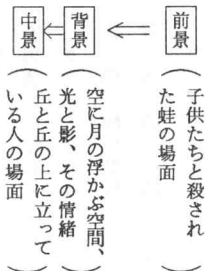 前景
(子供たちと殺され
た蛙の場面)
背景
(空に月の浮かぶ空間、
光と影、その情緒)
中景
(丘と丘の上に立って
いる人の場面)